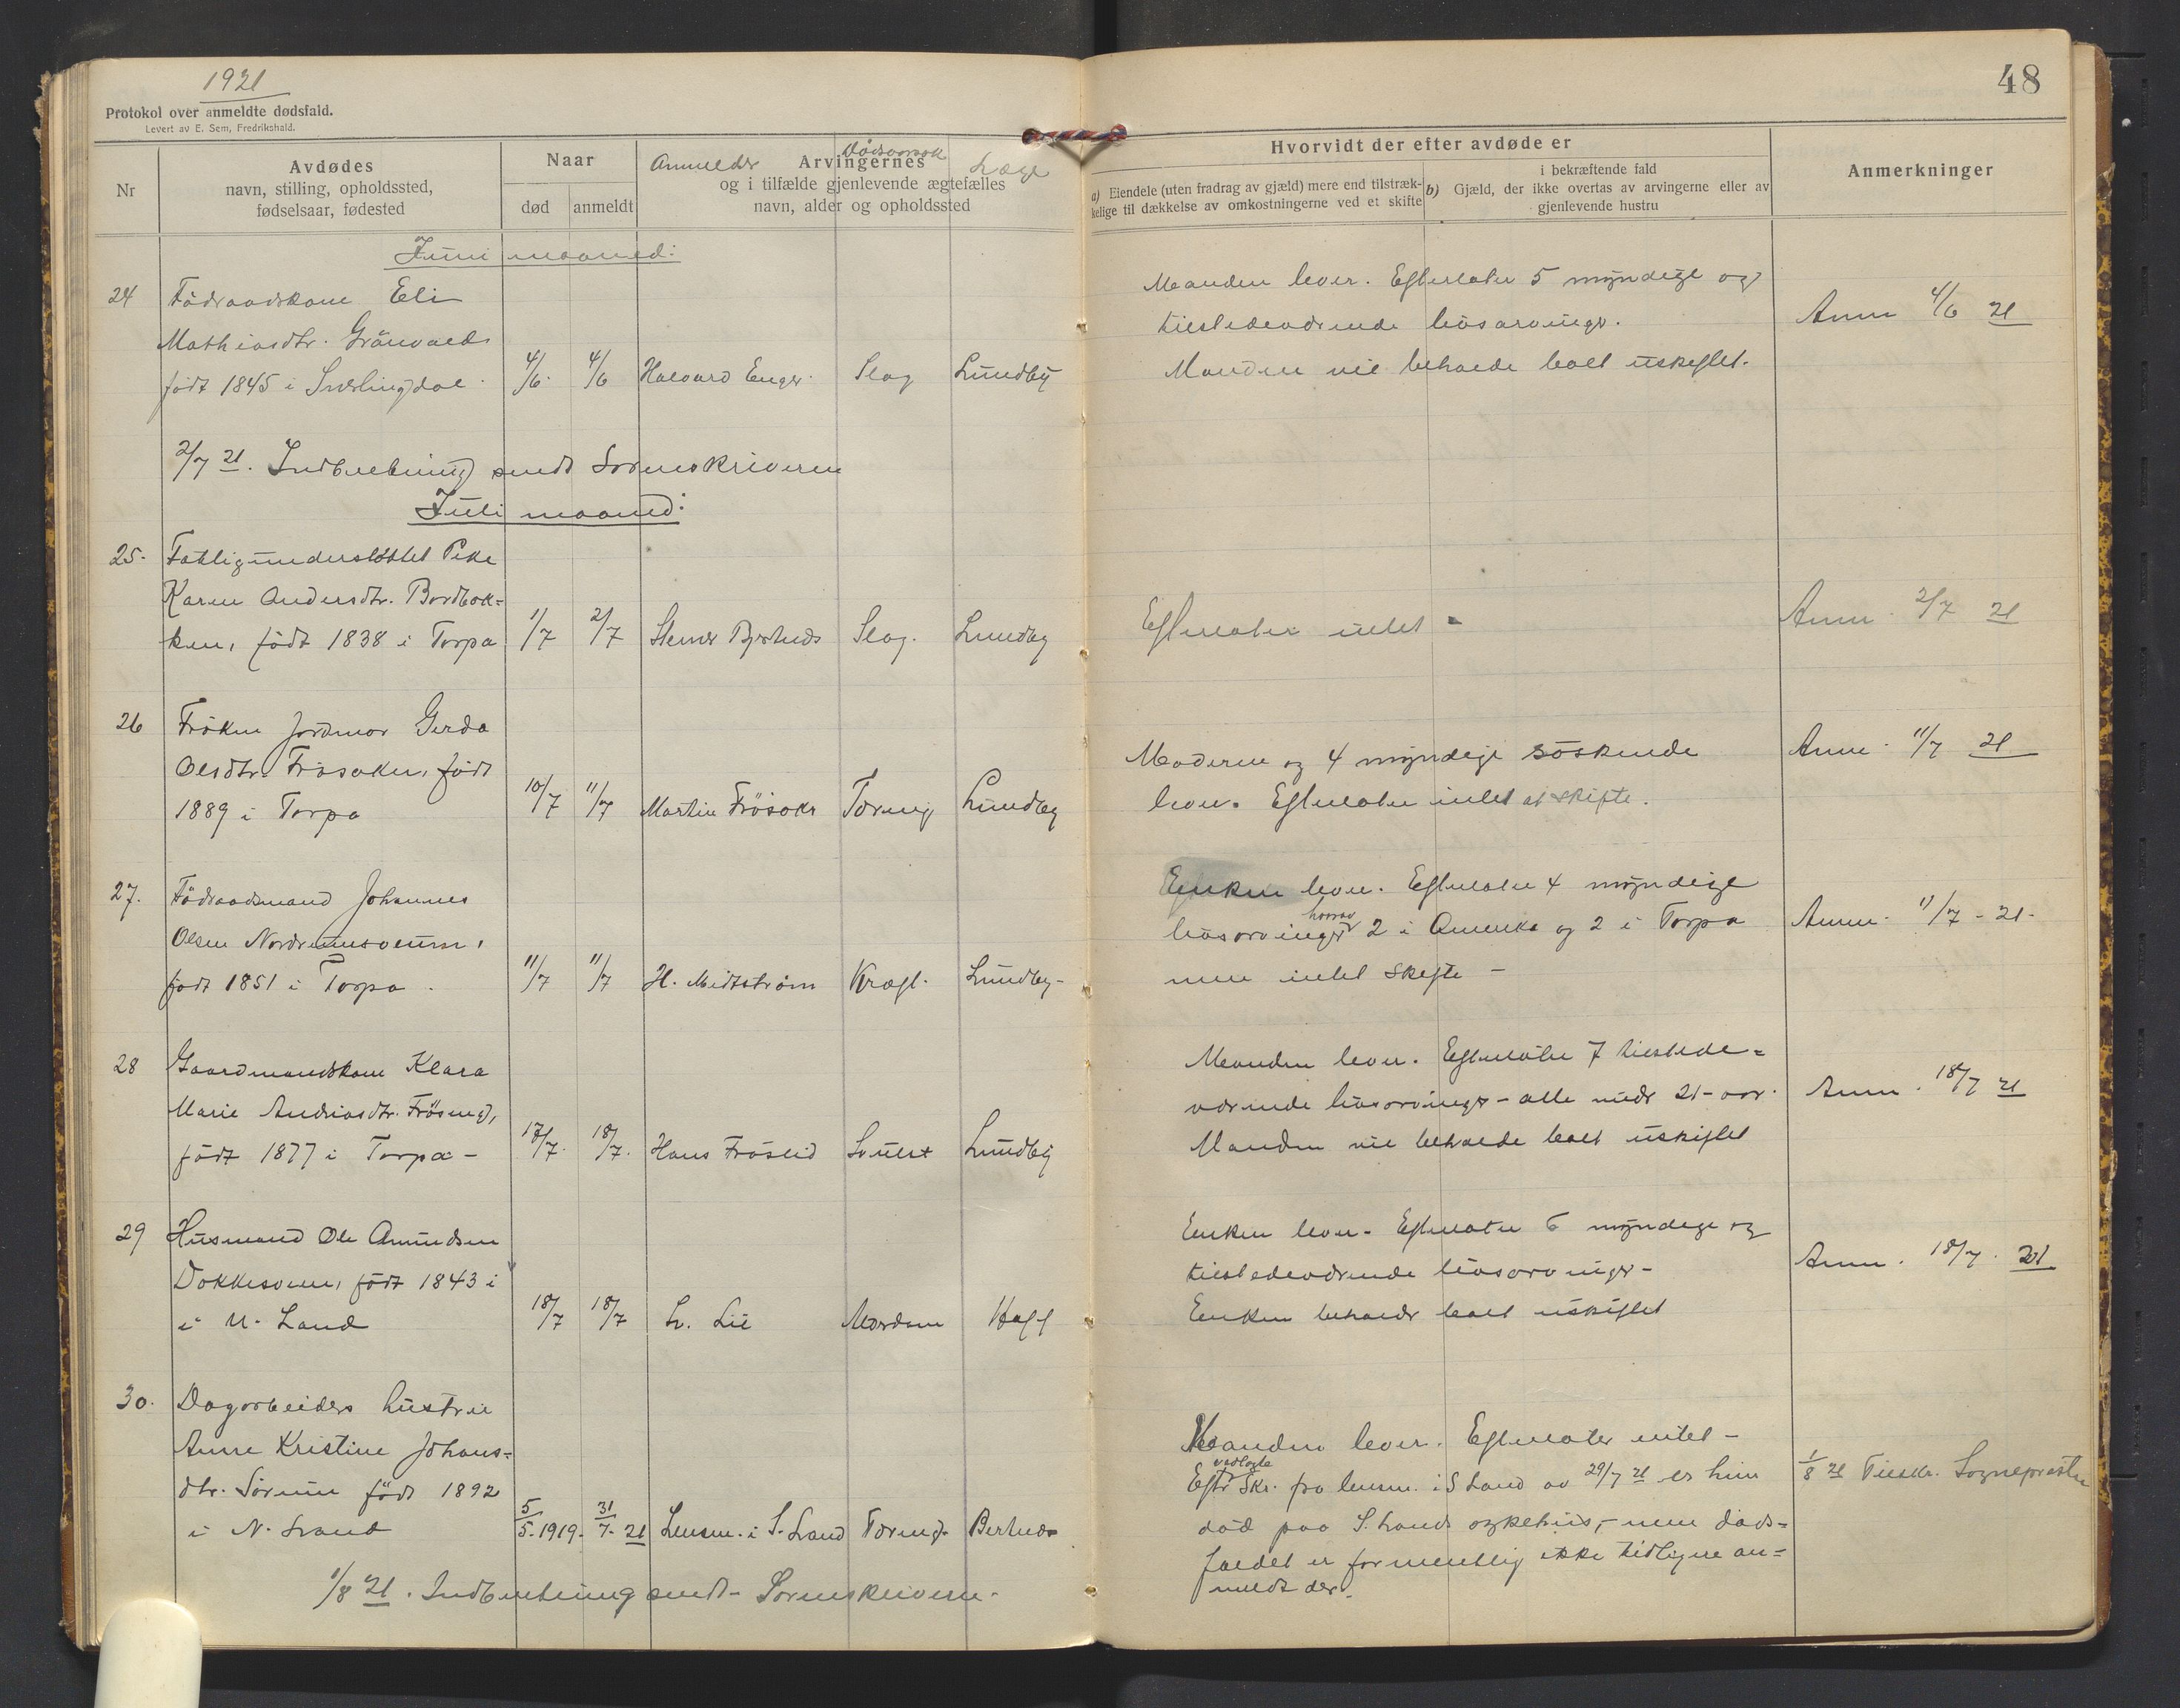 1921
Protokol over anmeldte dødsfald.
Levert av E. Sem, Fredrikshald.
48
Nr
Avdødes
navn, stilling, opholdssted,
fødselsaar, fødested
Naar
død
anmeldt
Anmelder
Dødsaarsak
Læge
Arvingernes
og i tilfælde gjenlevende ægtefælles
navn, alder og opholdssted
Hvorvidt der efter avdøde er
a) Eiendele (uten fradrag av gjæld) mere end tilstræk-
kelige til dækkelse av omkostningerne ved et skifte
i bekræftende fald
b) Gjæld, der ikke overtas av arvingerne eller av
gjenlevende hustru
Anmerkninger
Juni maaned:
24
Födraadskone Eli
Mathiasdtr. Grönvold
født 1845 i
4/6. 4/6 Halvard Enger. Slag Lundby
Manden lever. Efterlater 5 myndige og
tilstedeværende livsarvinger.
Manden vil beholde boet uskiftet.
Anm 4/6 21
2/7 21. Indberetning sendt Sorenskriveren
Juli maaned:
25.
Fattigunderstøttet Pike
Karen Andersdtr. Bordbak=
ken, født 1838 i Torpa
1/7 2/7 Slag. Lundby
Efterlater intet -
Anm. 2/7 21
26
Fröken Jordmor Gerda
Olsdtr. Frösaker, født
1889 i Torpa
10/7 11/7 Martin Frösaker Tæring Lundby
Moderen og 4 myndige söskende
lever. Efterlater intet at skifte.
Anm. 11/7 21
27.
Födraadsmand Johannes
Olsen
født 1851 i Torpa.
11/7 11/7 H. Midtström Kræft. Lundby-
Enken lever. Efterlater 4 myndige
livsarvinger hvorav 2 i Amerika og 2 i Torpa
men intet Skifte -
Anm. 11/7 - 21-
28
Gaardmandskone Klara
Marie Andreasdtr. Fröseng,
født 1877 i Torpa -
17/7. 18/7. Hans Fröslid Svulst Lundby
Manden lever. Efterlater 7 tilstede=
værende livsarvinger - alle under 21-aar.
Manden vil beholde boet uskiftet
Anm. 18/7 21
29
Husmand Ole Amundsen
Dokksveen, født 1843 i
i N. Land
18/7 18/7 L. Lie Hoff
Enken lever. Efterlater 6 myndige og
tilstedeværende livsarvinger -
Enken beholder boet uskiftet
Anm. 18/7. 21
30.
Dagarbeiders hustru
Anne Kristine Johans=
dtr. Sörum født 1892
i N. Land
5/5-1919. 31/7-21 Lensm. i S. Land Tæring. Berhnds
Manden lever. Efterlater intet -
Efter vedlagte Skr. fra lensm. i S Land av 29/7 21 er hun
död paa S. Lands sykehus, - men döds=
faldet er formentlig ikke tidligere an=
meldt der.
1/8 21 Tilskr. Sognepresten
1/8 21. Indberetning sendt - Sorenskriveren.